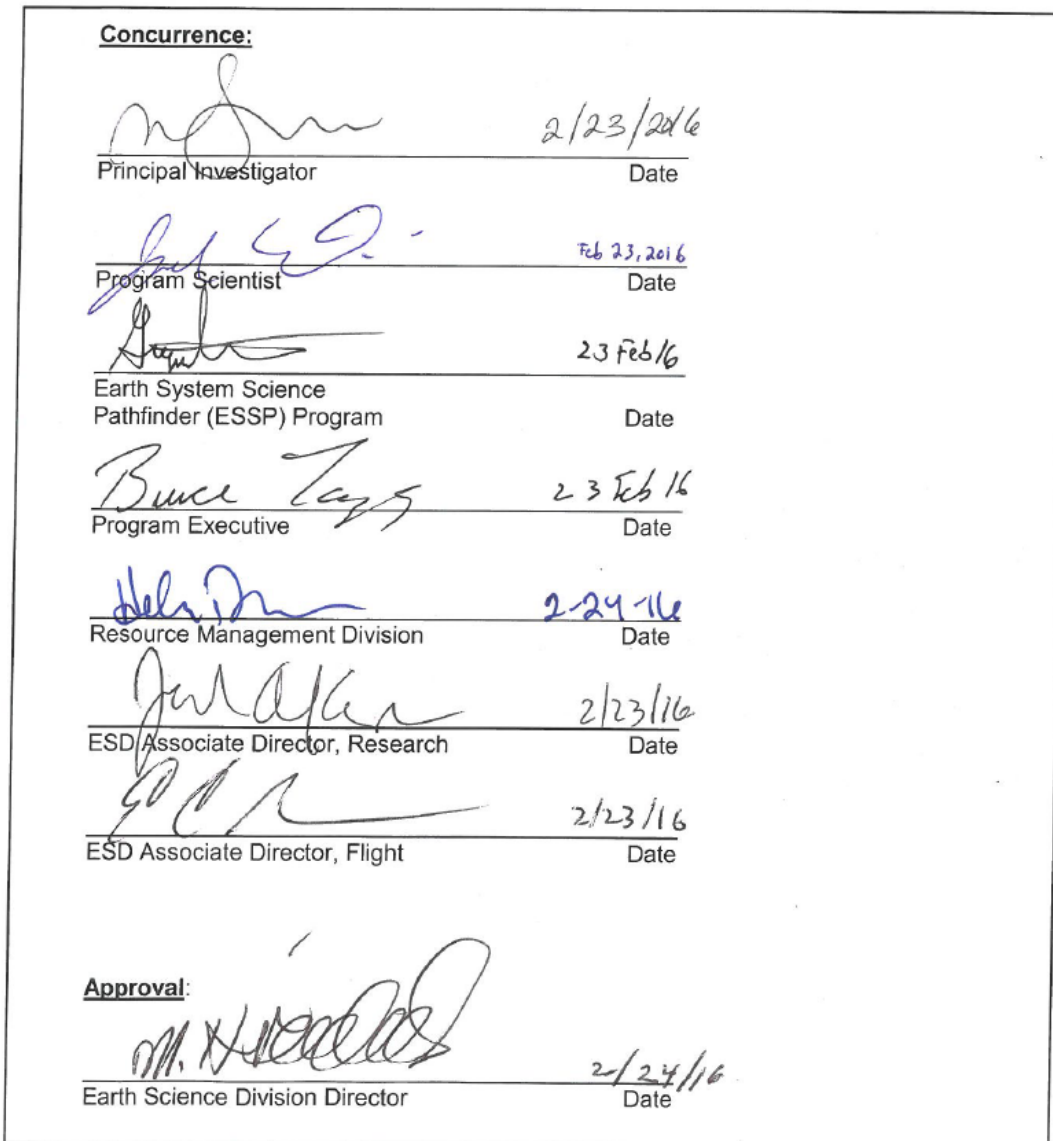 Concurrence:
2/23/2016
Principal Investigator Date
Feb 23, 2016
Program Scientist Date
23 Feb 16
Earth System Science
Pathfinder (ESSP) Program Date
Bruce Tagg 23 Feb 16
Program Executive Date
2-24-16
Resource Management Division Date
2/23/16
ESD Associate Director, Research Date
2/23/16
ESD Associate Director, Flight Date
Approval:
M. 2/24/16
Earth Science Division Director Date